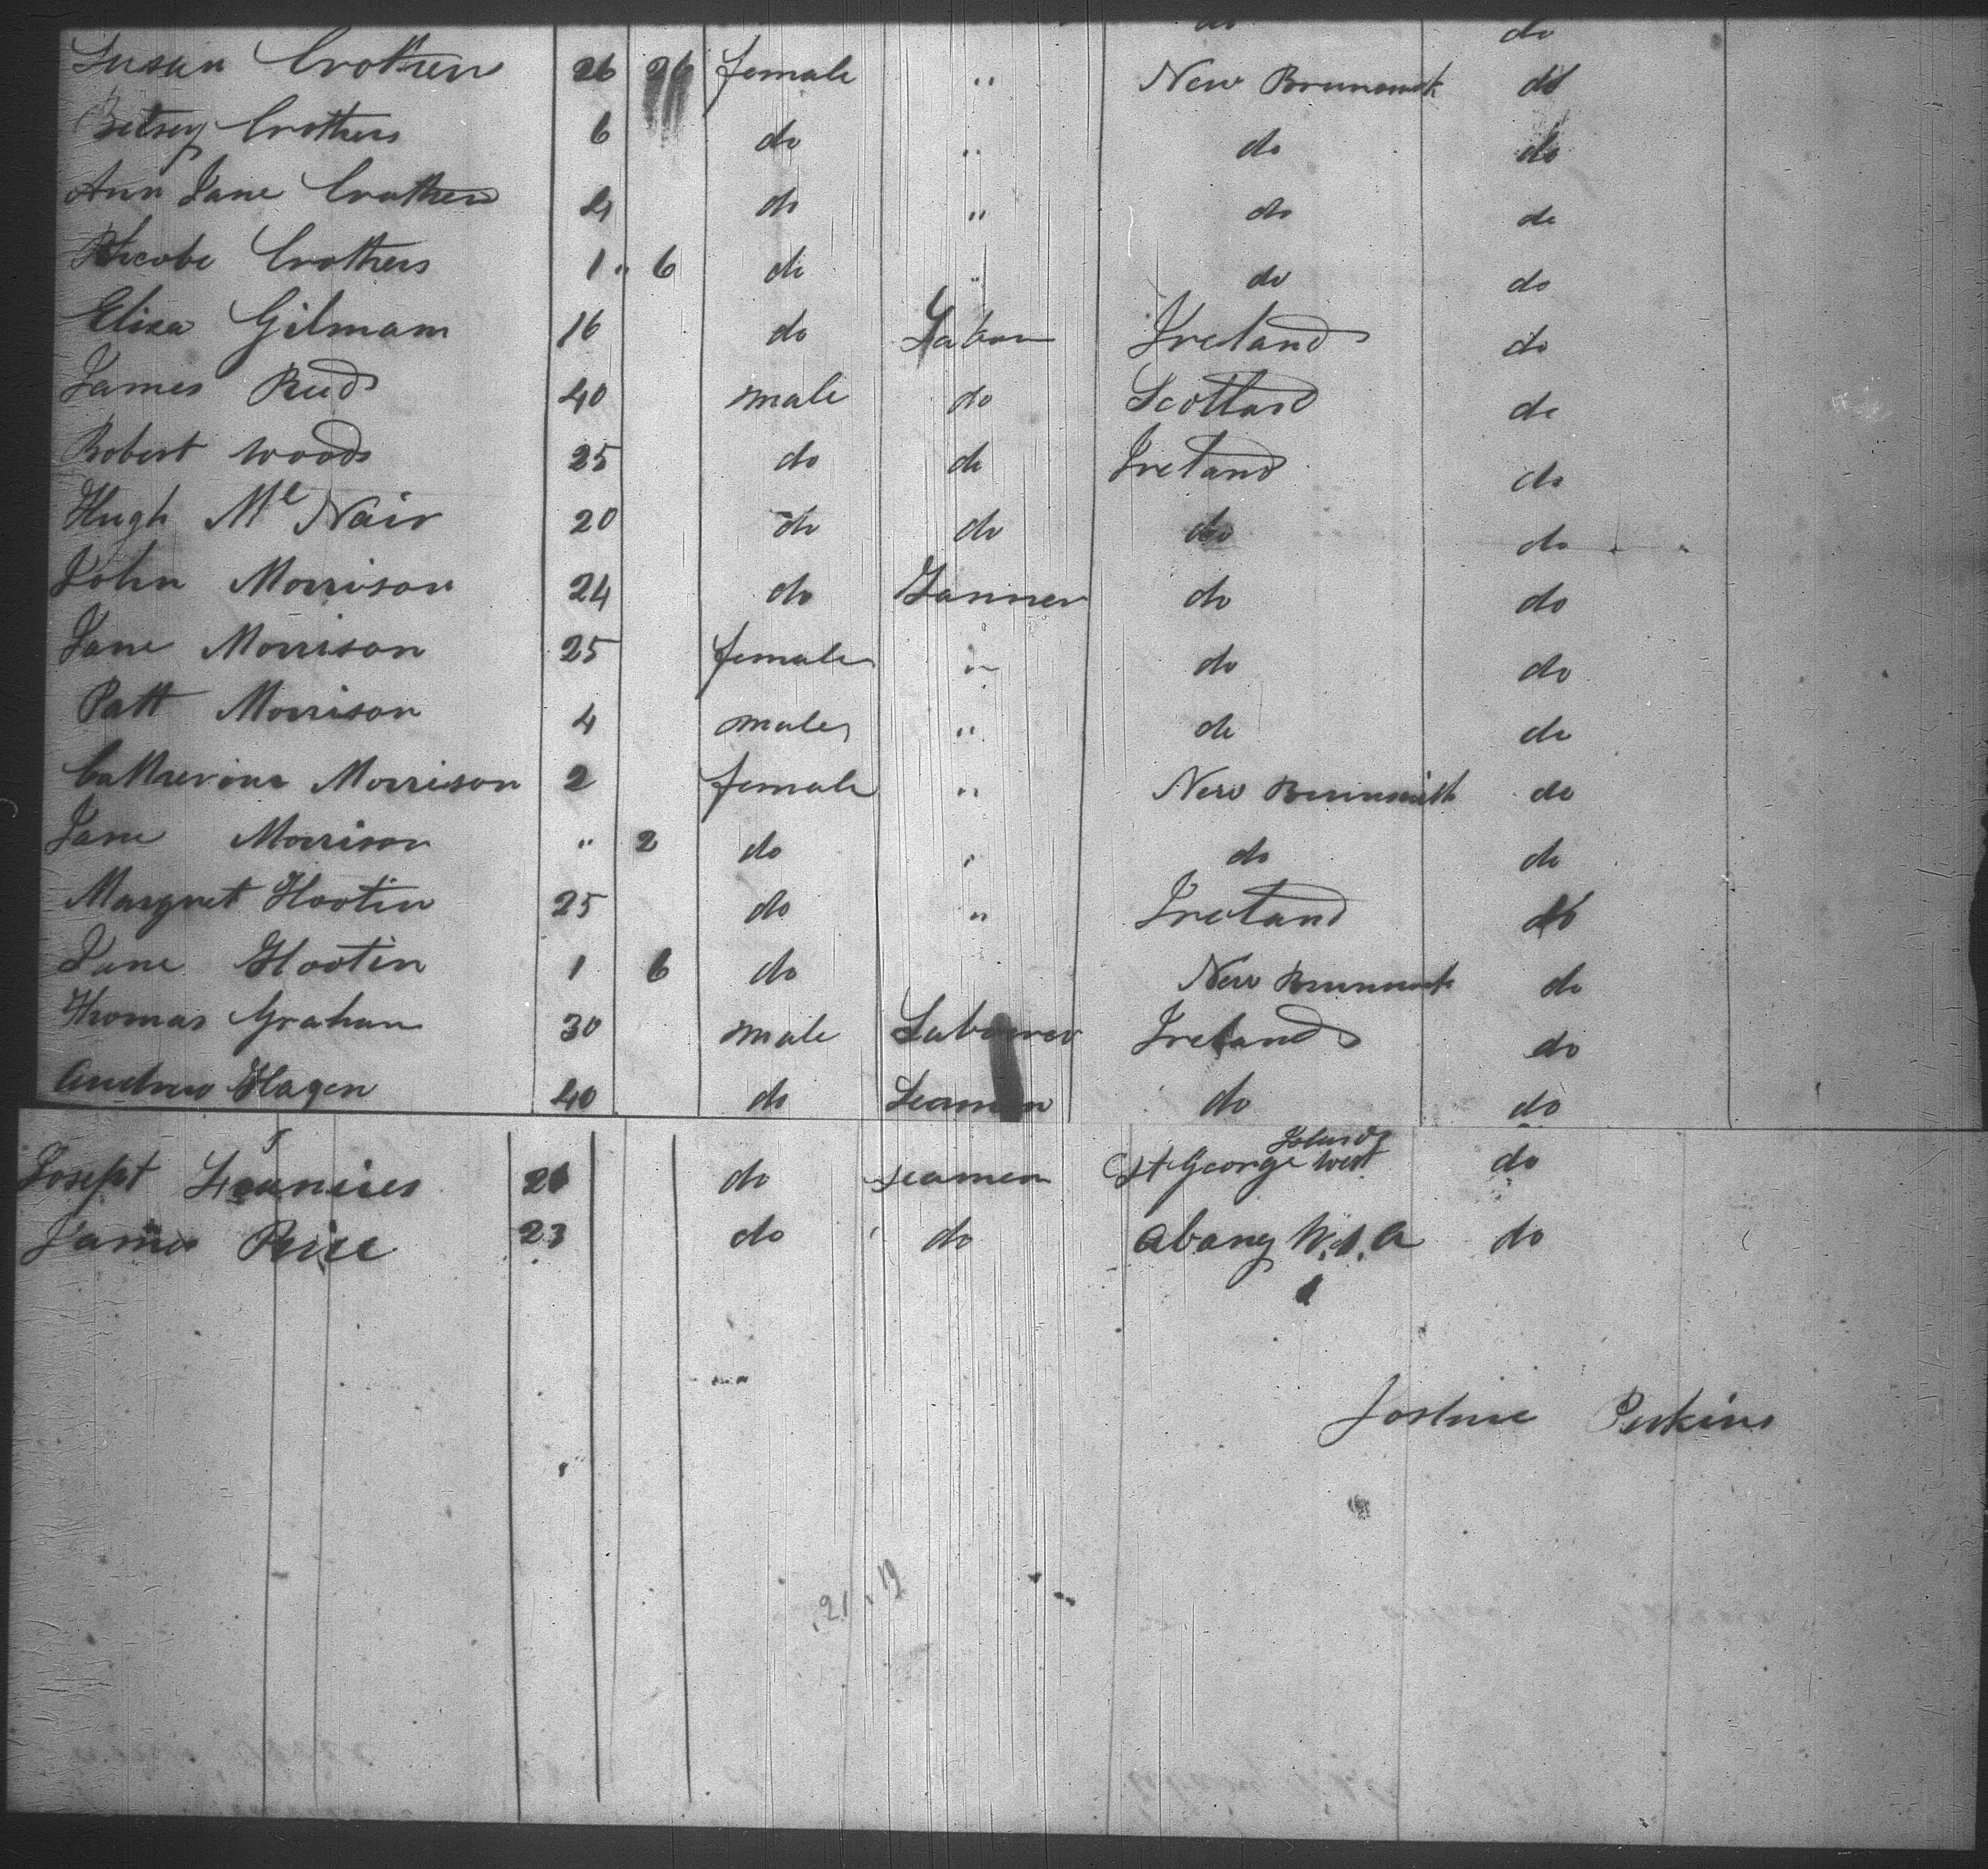 do do
Susan Crothers 26 26 female " New Brunswick do
Betsey Crothers 6 do " do do
Ann Jane Crothers 4 do " do do
Phicobe Crothers 1 " 6 do " do do
Eliza Gilmam 16 do Labour Ireland do
James Reid 40 male do Scotland do
Robert Woods 25 do do Ireland do
Hugh Mc Nair 20 do do do do
John Morrison 24 do Tanner do do
Jane Morrison 25 female " do do
Patt Morrison 4 male " do do
Catherine Morrison 2 female " New Brunswick do
Jane Morrison " 2 do " do do
Margret Hootin 25 do " Ireland do
Jane Hootin 1 6 do New Brunswick do
Thomas Graham 30 male Labourer Ireland do
Andrew Hagen 40 do Seamen do do
Joseph 26 do seamen St George West Islands do
James Rice 23 do do Abany do
Joshua Perkins